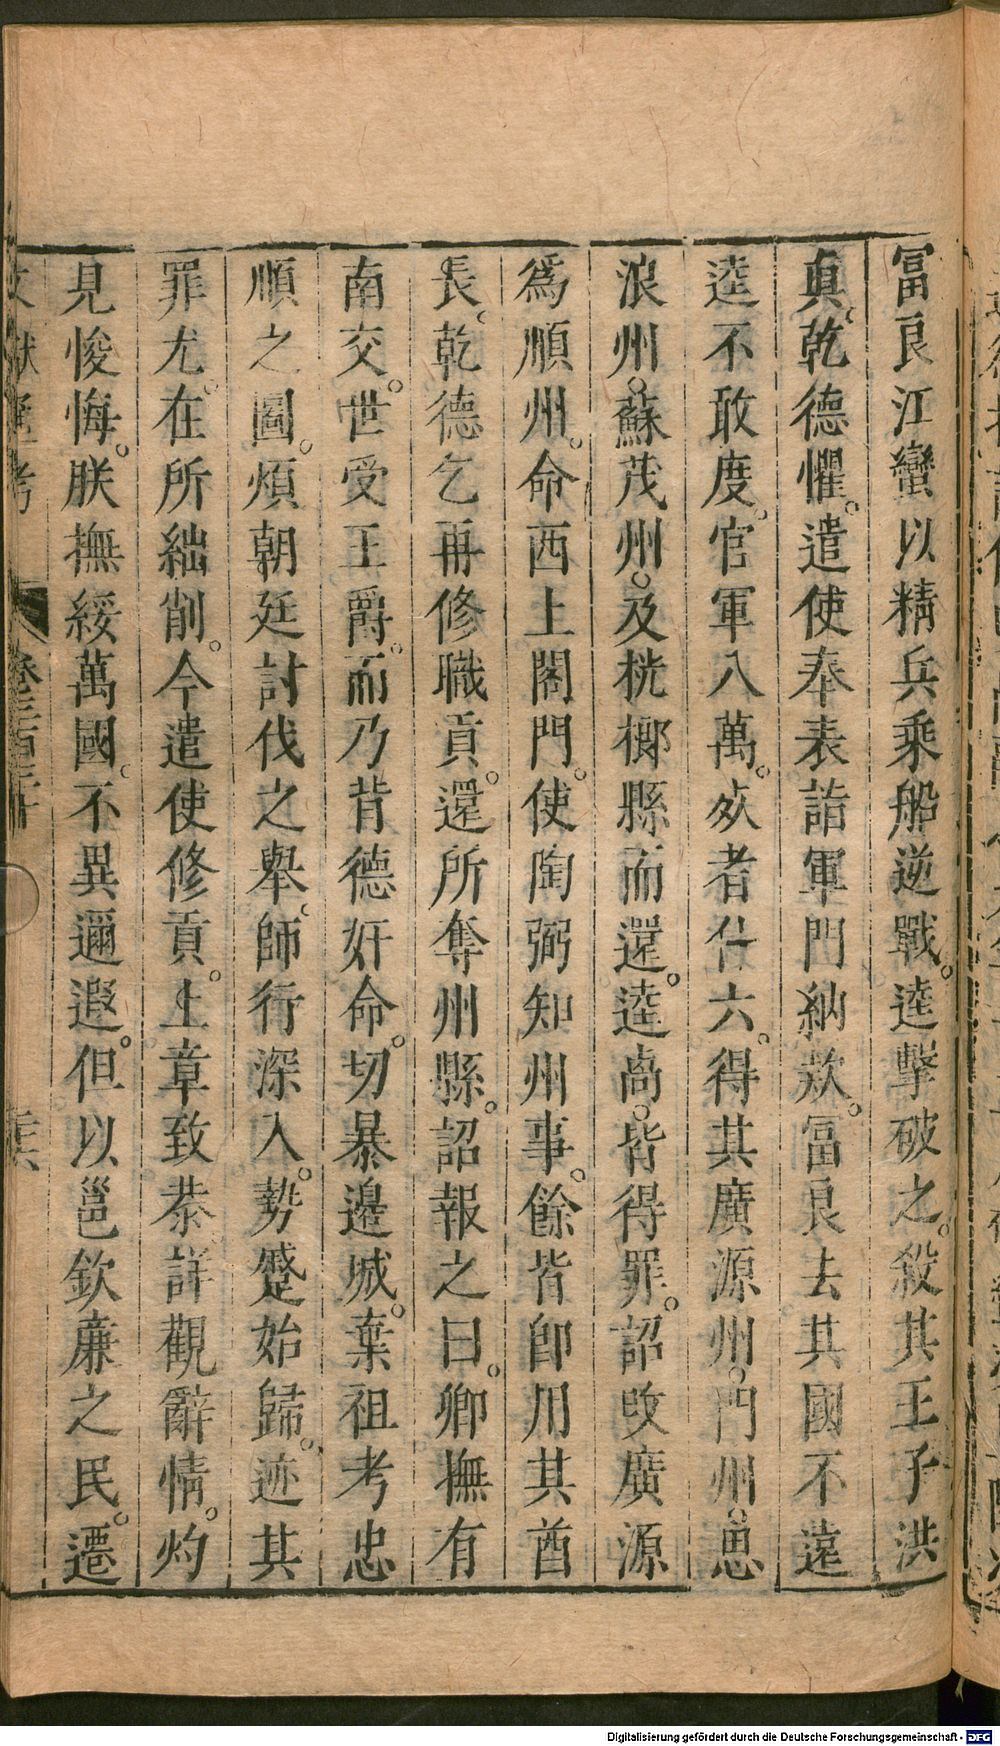 富良江蠻以精兵乘船逆戰。逵擊破之。殺其王子洪
眞。乾德懼。遣使奉表詣軍門納欵。富良去其國不遠
逵不敢度。官軍八萬。死者什六。得其廣源州。門州。思
浪州。蘇茂州。及桄榔縣而還。逵卨。皆得罪。詔改廣源
爲順州。命西上閤門。使陶弼知州事。餘皆卽用其酋
長。乾德乞再修職貢。還所奪州縣。詔報之曰。卿撫有
南交。世受王爵。而乃背德奸命。切暴邊城。棄祖考忠
順之圖。煩朝廷討伐之舉。師行深入。勢蹙始歸。迹其
罪尤。在所絀削。今遣使修貢。上章致恭。詳觀辭情。灼
見悛悔。朕撫綏萬國。不異邇遐。但以邕欽廉之民。遷
文獻通考 卷三百三十 三六
Digitalisierung gefördert durch die Deutsche Forschungsgemeinschaft - DFG